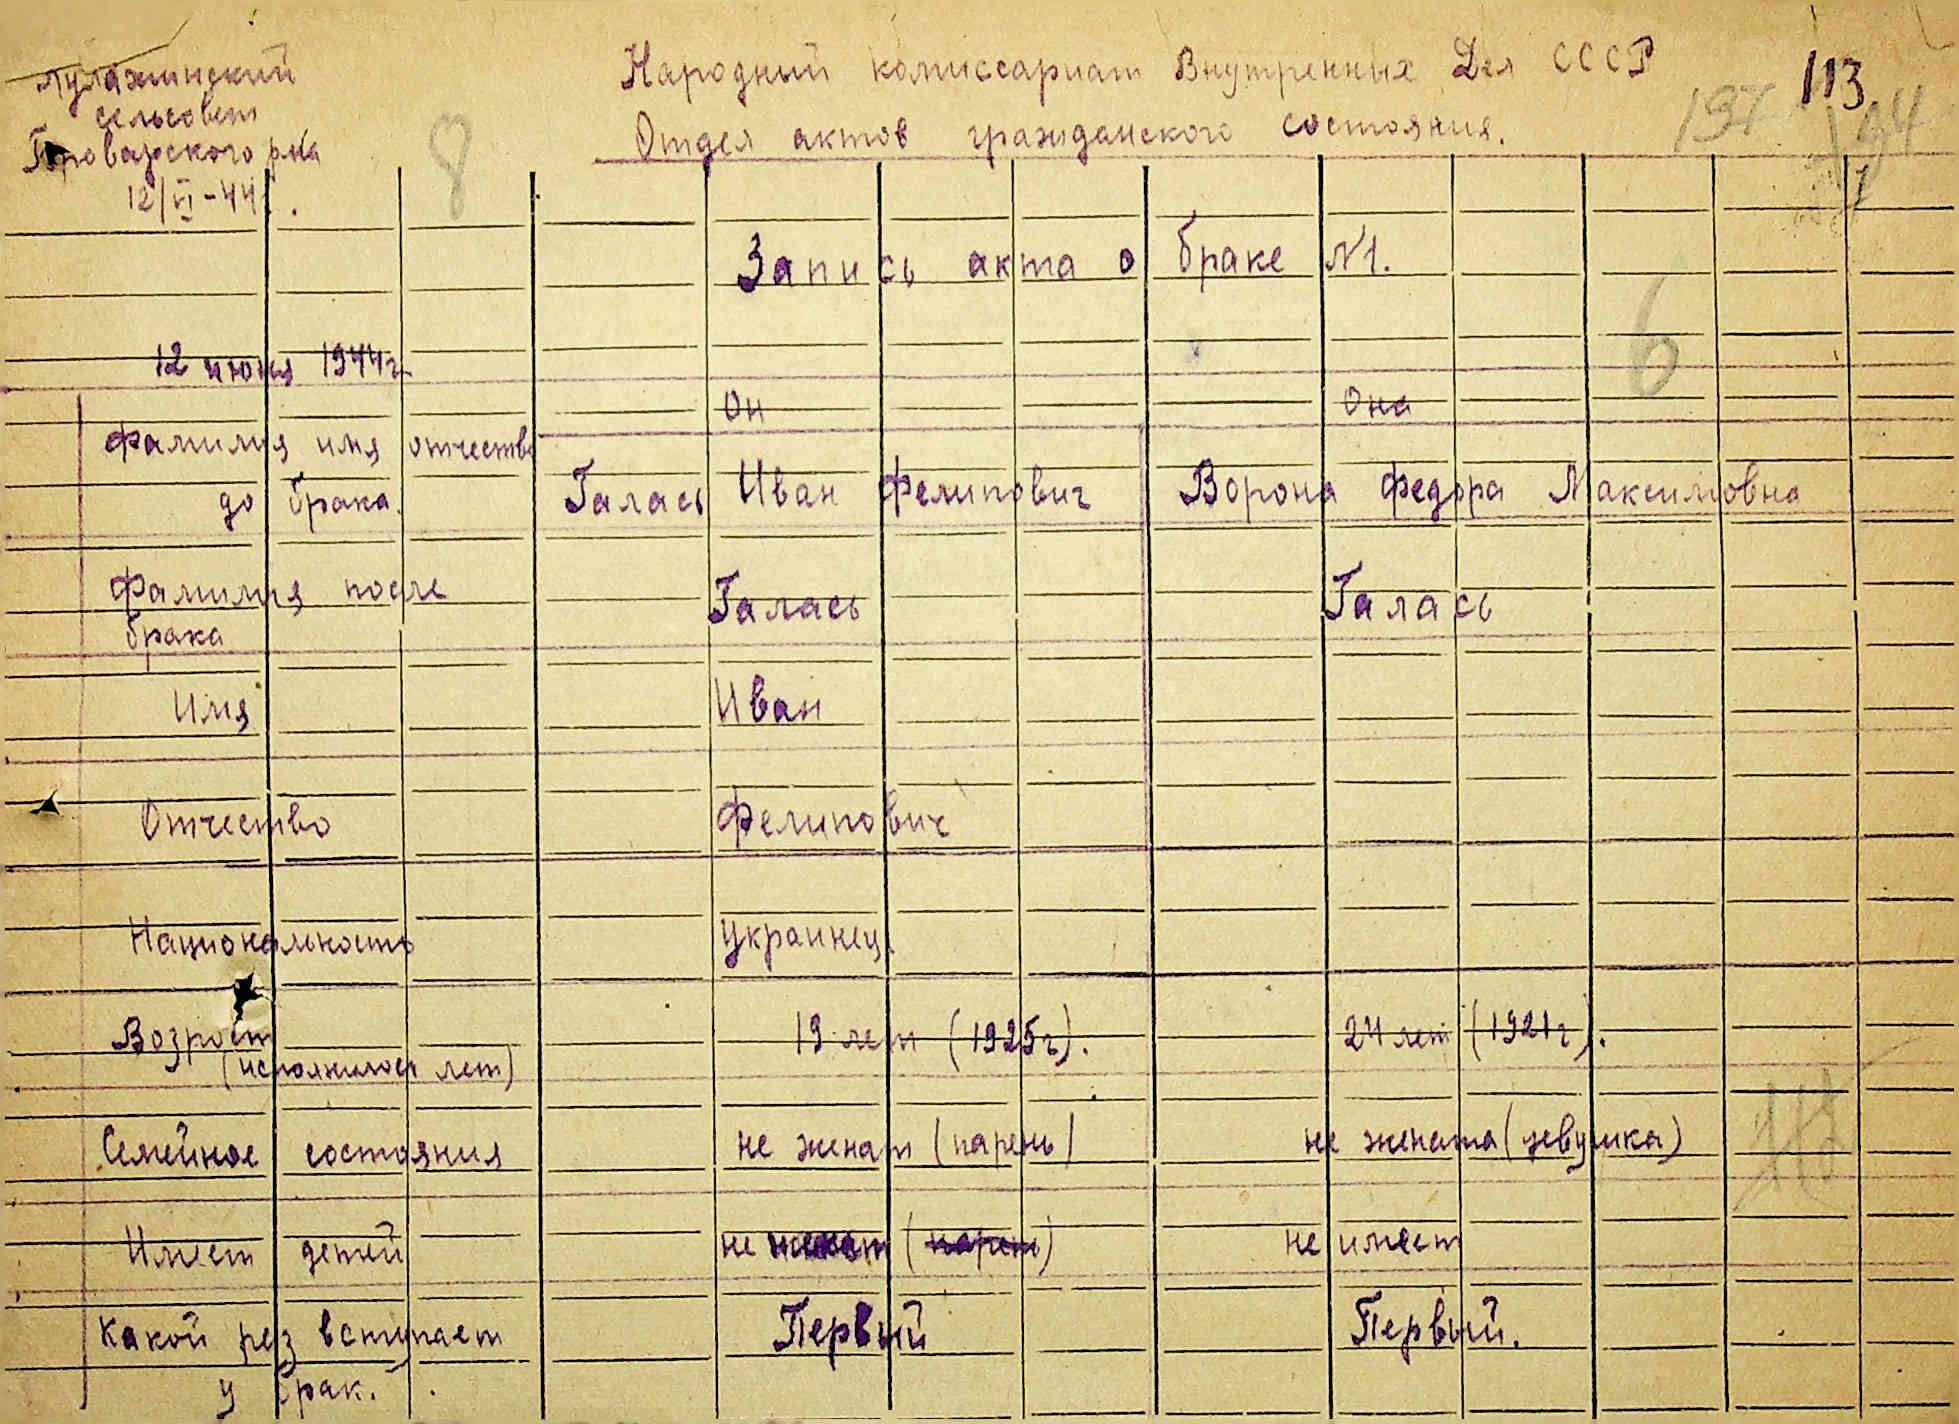 Пулажинский
сельсовет
Броварского р-на
12/VI-44г.
8
Народний комиссариат Внутренных Дел СССР
Отдел актов гражданского состояния.
113
197
194
Запись акта о браке №1.
6
12 июня 1944г.
Он Она
Фамилия имя отчество
до брака. Галась Иван Фелипович Ворона Федора Максимовна
Фамилия после
брака Галась Галась
Имя Иван
Отчество Фелипович
Национальность украинец.
Возрост 19 лет (1925г). 24 лет (1921г).
(исполнилося лет)
Семейное состояния не женат (парень) не жената (девушка)
Имеет детей не женат (парень) не имеет
Какой рез вступает Первый Первый.
у брак.